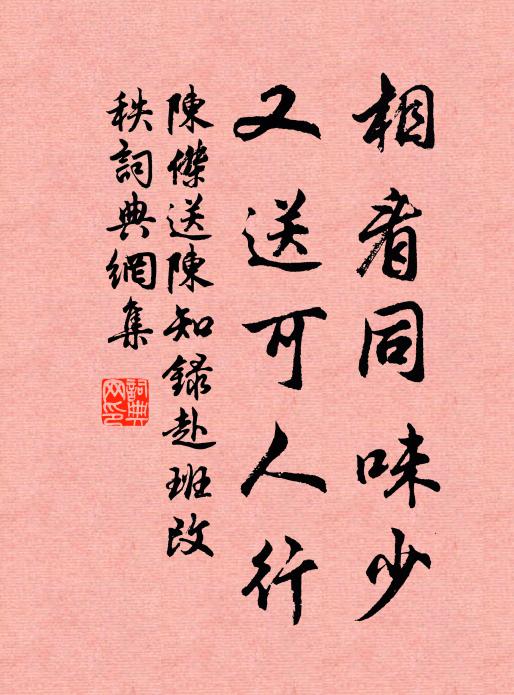 相看同味少
又送可人行
陳傑送陳知錄赴班改
秩詞典網集
詞典
网印